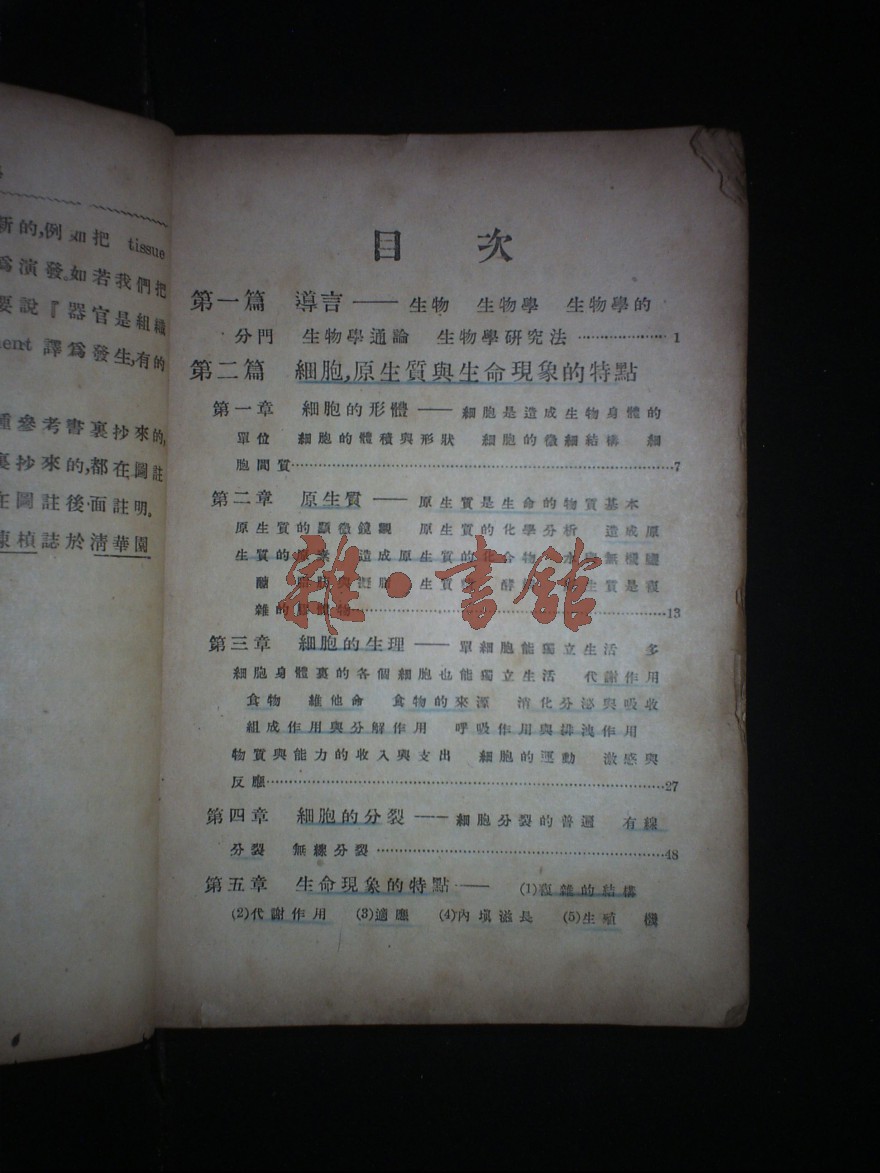 新的,例如把 tissue
為演發。如若我們把
要說『器官是組織
ment 譯為發生,有的
種參考書裏抄來的,
裏抄來的,都在圖註
在圖註後面註明。
陳楨誌於清華園
目 次
第一篇 導言—— 生物 生物學 生物學的
分門 生物學通論 生物學研究法 ……………1
第二篇 細胞,原生質與生命現象的特點
第一章 細胞的形體 —— 細胞是造成生物身體的
單位 細胞的體積與形狀 細胞的微細結構 細
胞間質……………7
第二章 原生質 —— 原生質是生命的物質基本
原生質的顯微鏡觀 原生質的化學分析 造成原
生質的原素 造成原生質的化合物 水與無機鹽
醣 脂肪與擬脂 生質是複
雜的 物……………13
第三章 細胞的生理 —— 單細胞能獨立生活 多
細胞身體裏的各個細胞也能獨立生活 代謝作用
食物 維他命 食物的來源 消化分泌與吸收
組成作用與分解作用 呼吸作用與排洩作用
物質與能力的收入與支出 細胞的運動 激感與
反應……………27
第四章 細胞的分裂 —— 細胞分裂的普遍 有線
分裂 無線分裂……………48
第五章 生命現象的特點 —— (1)複雜的結構
(2)代謝作用 (3)適應 (4)內填滋長 (5)生殖 機
雜·書館